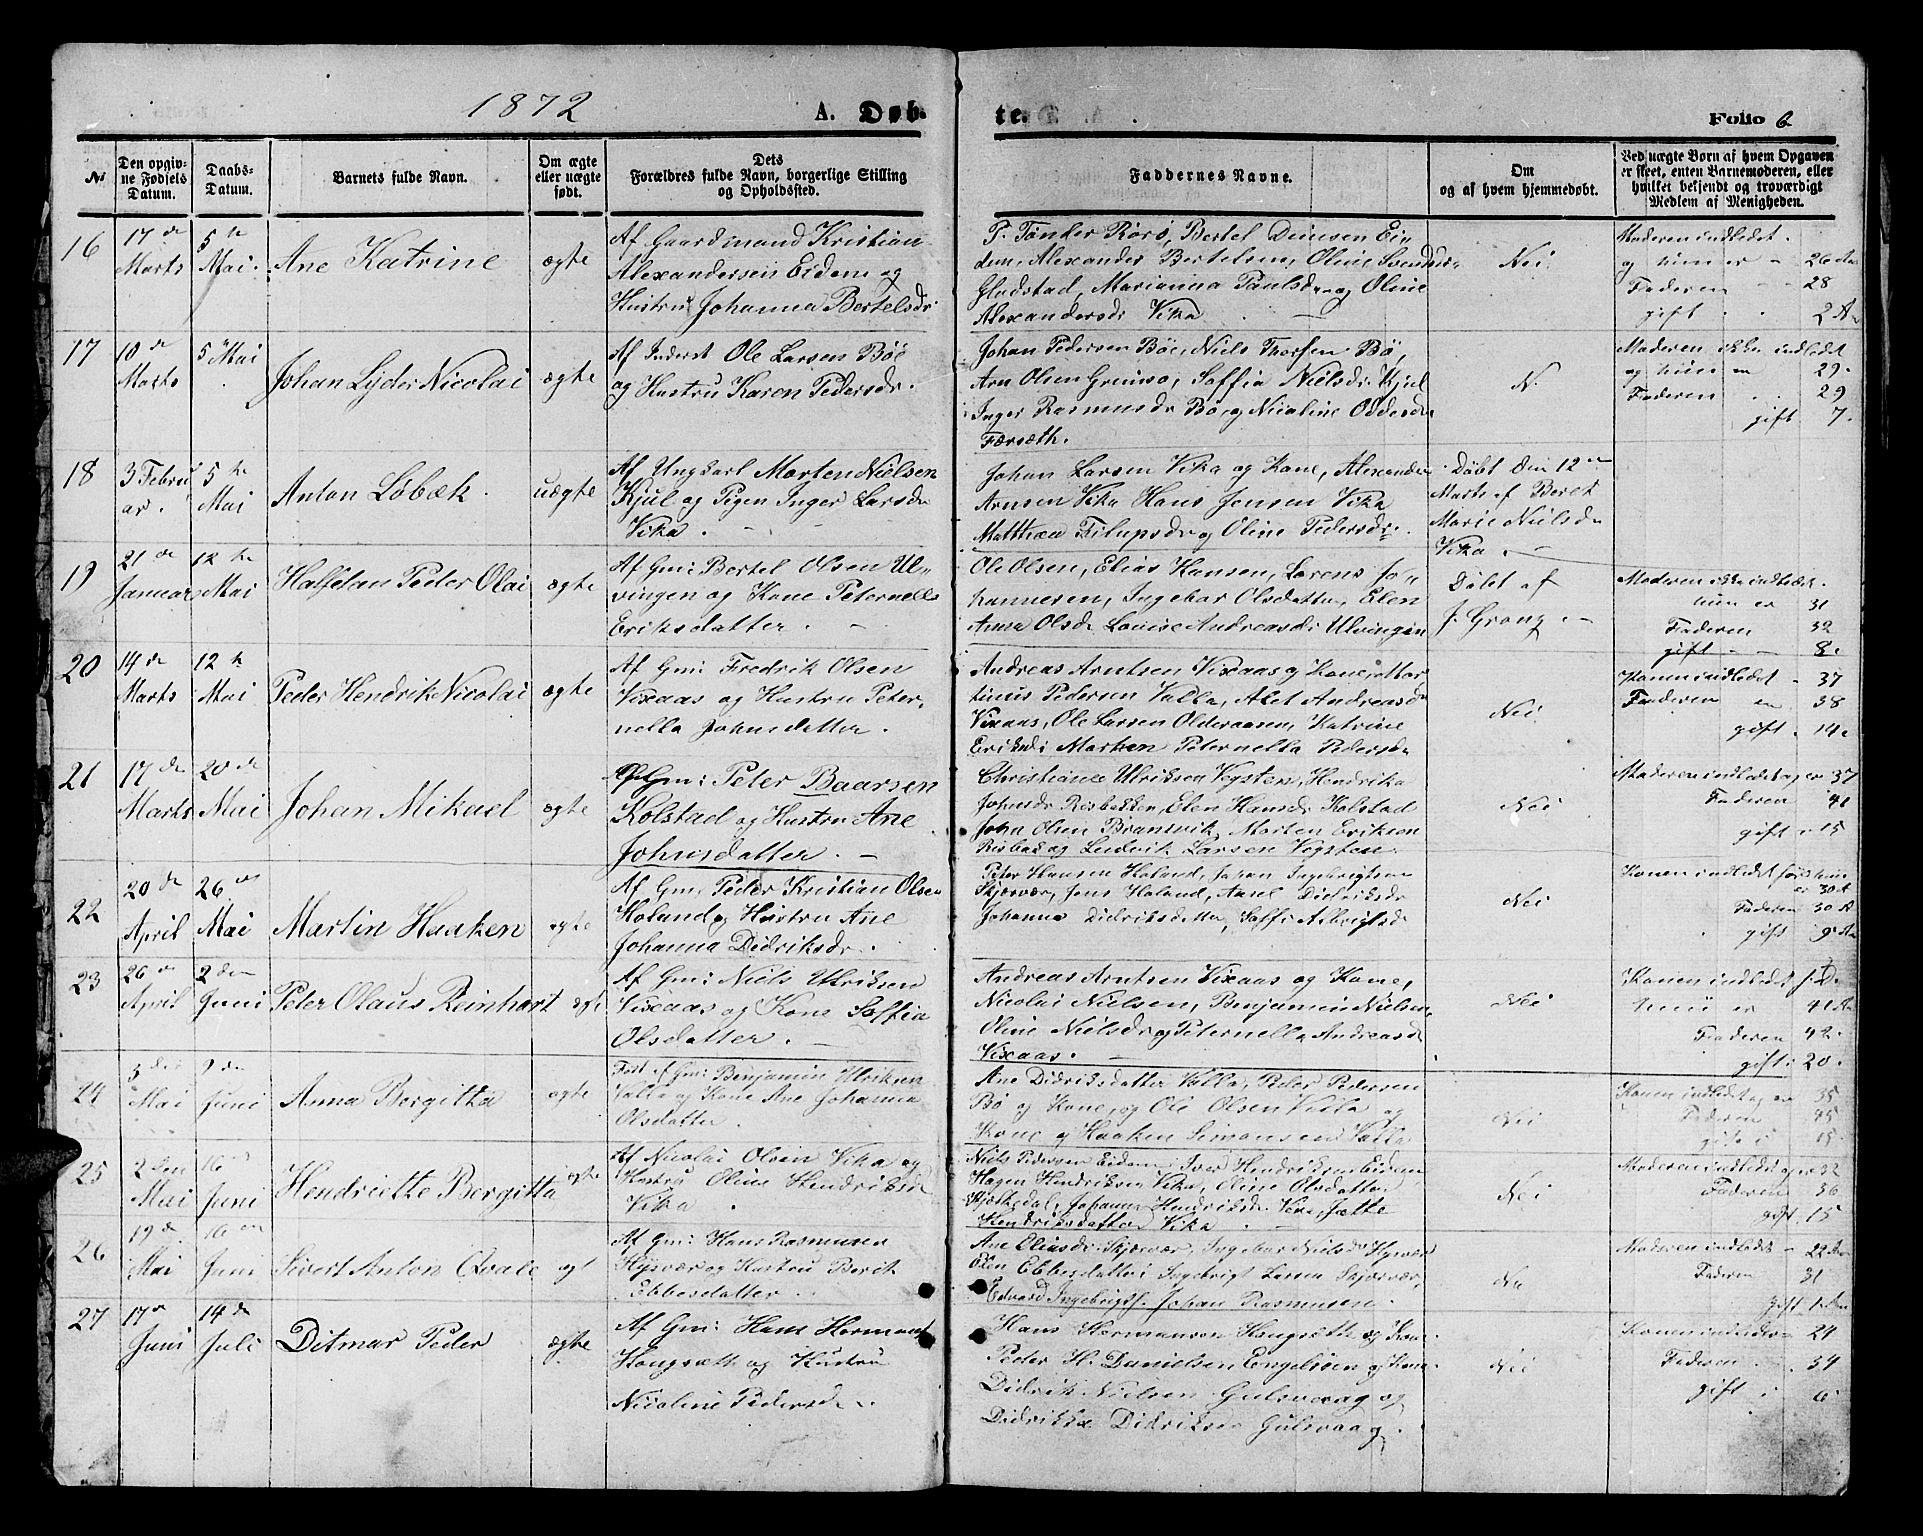 1872
A. Døb-
te.
Folio 6
No
Den opgiv-
ne Fødsels
Datum.
Daabs-
Datum.
Barnets fulde Navn.
Om ægte
eller uægte
født.
Dets
Forældres fulde Navn, borgerlige Stilling
og Opholdssted.
Faddernes Navne.
Om
og af hvem hjemmedøbt.
Ved uægte Børn af hvem Opgaven
er skeet, enten Barnemoderen, eller
hvilket bekjendt og troværdigt
Medlem af Menigheden.
16
17de
Marts
5te
Mai.
Ane Katrine
ægte
Af Gaardmand Kristian
Alexandersen Eidem og
Hustru Johanna Bertelsdr
P. Tønder Rørø, Bertel Dinesen Ei-
dem, Alexander Bertelsen, Oline
Gladstad, Marianna Paulsd og Oline
Alexandersdr Vika
Nei
Moderen indledet
og hun er 26 Aar
Faderen 28
gift 2 Aar
17
10de
Marts
5te Mai
Johan Lyder Nicolai
ægte
Af Inderst Ole Larsen Böe
og Hustru Karen Pedersdr.
Johan Pedersen Böe, Niels Bö,
Arn Olsen Soffia Nielsdr Kjul
Inger Rasmusdr Bö og Nicoline
Færsæth.
N.
Moderen ikke indledet
og hun er 29.
Faderen 29
gift 7.
18
3 Febru
ar.
5te
Mai
Anton Løbæk.
uægte
Af Ungkarl Morten Nielsen
Kjul og Pigen Inger Larsdr
Vika.
Johan Larsen Vika og Kone, Alexander
Arnsen Vika Hans Jensen Vika
Matthea Filupsdr og Oline Pedersdr.
Døbt den 12te
Marts af Beret
Marie Nielsdr
Vika.
19
21de
Januar
12te
Mai
Halfdan Peder Olai
ægte
Af Gm: Bertel Olsen Ul-
vingen og Kone Peternelle
Eriksdatter.
Ole Olsen, Elias Hansen, Lorens Jo-
hannesen, Ingebor Olsdatter, Elen
Anna Olsdr Louise Andreasdr Ulvingen
Døbt af
J. Grong.
Moderen ikke indledet.
hun er 31
Faderen 32
gift 8.
20
14de
Marts
12te
Mai
Peder Hendrik Nicolai
ægte
Af Gm: Fredrik Olsen
Vixaas og Hustru Peter-
nella Johnsdatter.
Andreas Arntsen Vixaas og Kone, Mor
tinus Pedersen Valla, Alet Andreasdr
Vixaas, Ole Larsen Olderaasen, Katrine
Eriksdr Peternella Pedersdr
Nei
Konen indledet 37
Faderen er 38
gift 14.
21
17de
Marts
20de
Mai
Johan Mikael
ægte
Af Gm: Peter Baarsen
Kolstad og Hustru Ane
Johnsdatter.
Christiane Ulriksen Vegsten, Hendrika
Johnsdr Risbakken, Elen Hansdr Kolstad
John Olsen Morten Eriksen
Risbak og Ludvik Larsen Vegsten.
Nei
Moderen indledet og er 37
Faderen 41
gift 15
22
20de
April
26de
Mai
Martin Haaken
ægte
Af Gm. Peder Kristian Olsen
Holand og Hustru Ane
Johanna Didriksdr.
Peter Hansen Holand, Johan Ingebrigtsen
Skjærvær, Jens Holand, Anne Didriksdr
Johanna Didriksdatter, Soffi
Nei
Konen indledet hun
er 30 A
Faderen 30 A
gift 9 Aar
23
26de
April
2den
Juni
Peter Olaus Reinhart
ægte
Af Gm: Niels Ulriksen
Vixaas og Kone Soffia
Olsdatter.
Andreas Arntsen Vixaas og Kone,
Nicolai Nielsen, Benjamin Nielsen
Oline Nielsdr og Peternella Andreasdr
Vixaas.
Nei
Konen indledet
hun er 41 Aar
Faderen 42.
gift 20.
24
Mai
9de
Juni
Anna Bergitta
ægte
Født af Gm: Benjamin Ulriksen
Valla og Kone Ane Johanna
Olsdatter.
Ane Didriksdatter Valla, Peter Pedersen
Bö og Kone, og Ole Olsen Valla og
Kone og Haaken Simonsen Valla
Nei
Konen indledet og er 35
Faderen 45
gift 15.
25
2den
Mai
16de
Juni
Hendriette Bergitta
ægte
Af Nicolai Olsen Vika og
Hustru Oline Hendriksdr
Vika
Niels Pedersen Eidem, Iver Hendriksen Eidem
Hagen Hendriksen Vika, Oline Olsdatter
Johanna Hendriksdr Vika, Jette
Hendriksdatter Vika
Nei
Moderen indledet og er 32
Faderen 36
gift 15
26
19de
Mai
16de
Juni
Sivert Anton Qvale
ægt
Af Gm: Hans Rasmusen
Hysvær og Hustru Berit
Ebbesdatter.
Ane Eliasdr Skjærvær, Ingebor Nielsdr Hysvær
Elen Ebbesdatter Ingebrigt Larsen Skjærvær,
Edvard Ingebrigts. Johan Rasmusen
Ne
Moderen indledet 29 Aar
Faderen 31
gift 1 Aar
27
17de
Juni
14de
Juli
Ditmar Peder
ægte
Af Gm: Hans Hermansen
Hongsæth og Hustru
Nicoline Pedersdr.
Hans Hermansen Hongsæth og Kone
Peder H. Danielsen, Engelsøen og Kone
Didrik Nielsen Gulsvaag og
Didrikke Didriksen Gulsvaag.
Nei
Konen 24
Faderen 34
gift 6